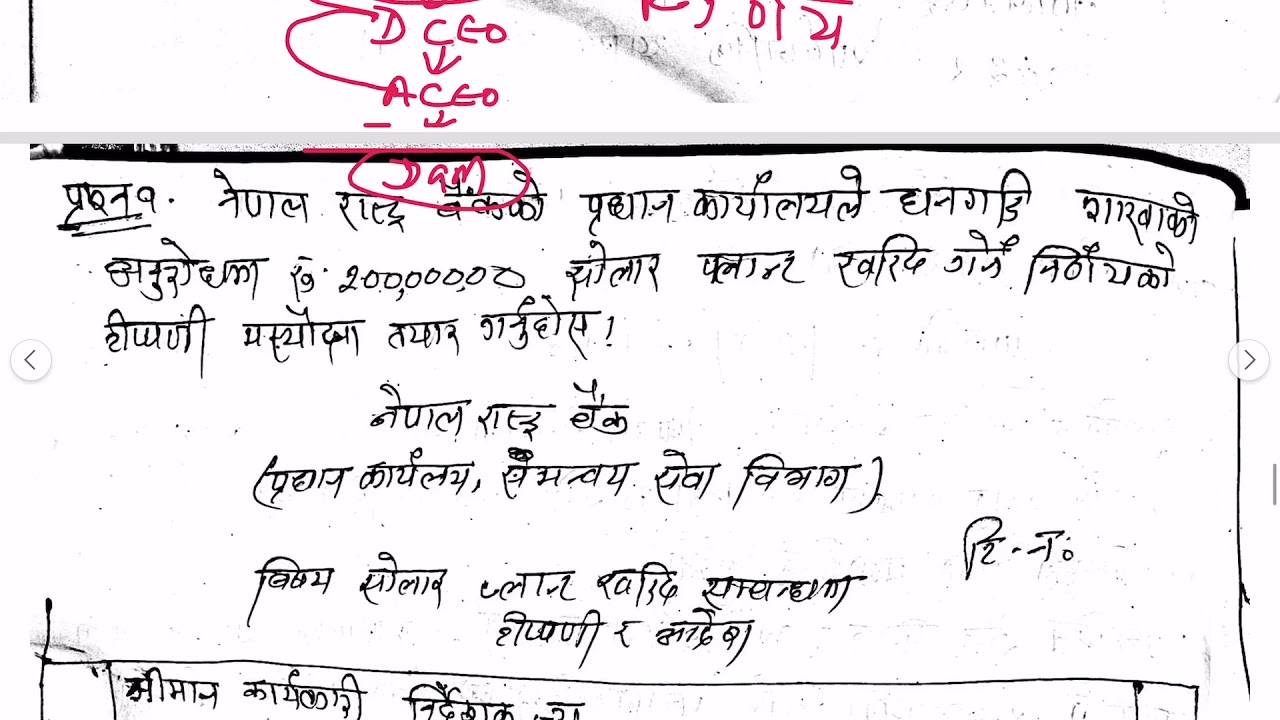 D CEO
ACEO
Dam
प्रश्न१. नेपाल राष्ट्र बैंकको प्रधान कार्यालयले धनगढि शाखाको
अनुरोधमा रु. 200,00000 सोलार प्लान्ट खरिद गर्ने निर्णयको
टीप्पणी मस्यौदा तयार गर्नुहोस !
नेपाल राष्ट्र बैंक
(प्रधान कार्यलय, समन्वय सेवा विभाग)
टि. नं
विषय सोलार प्लान्ट खरिद सम्बन्धमा
टीप्पणी र आदेश
श्रीमान कार्यकारी निर्देशक